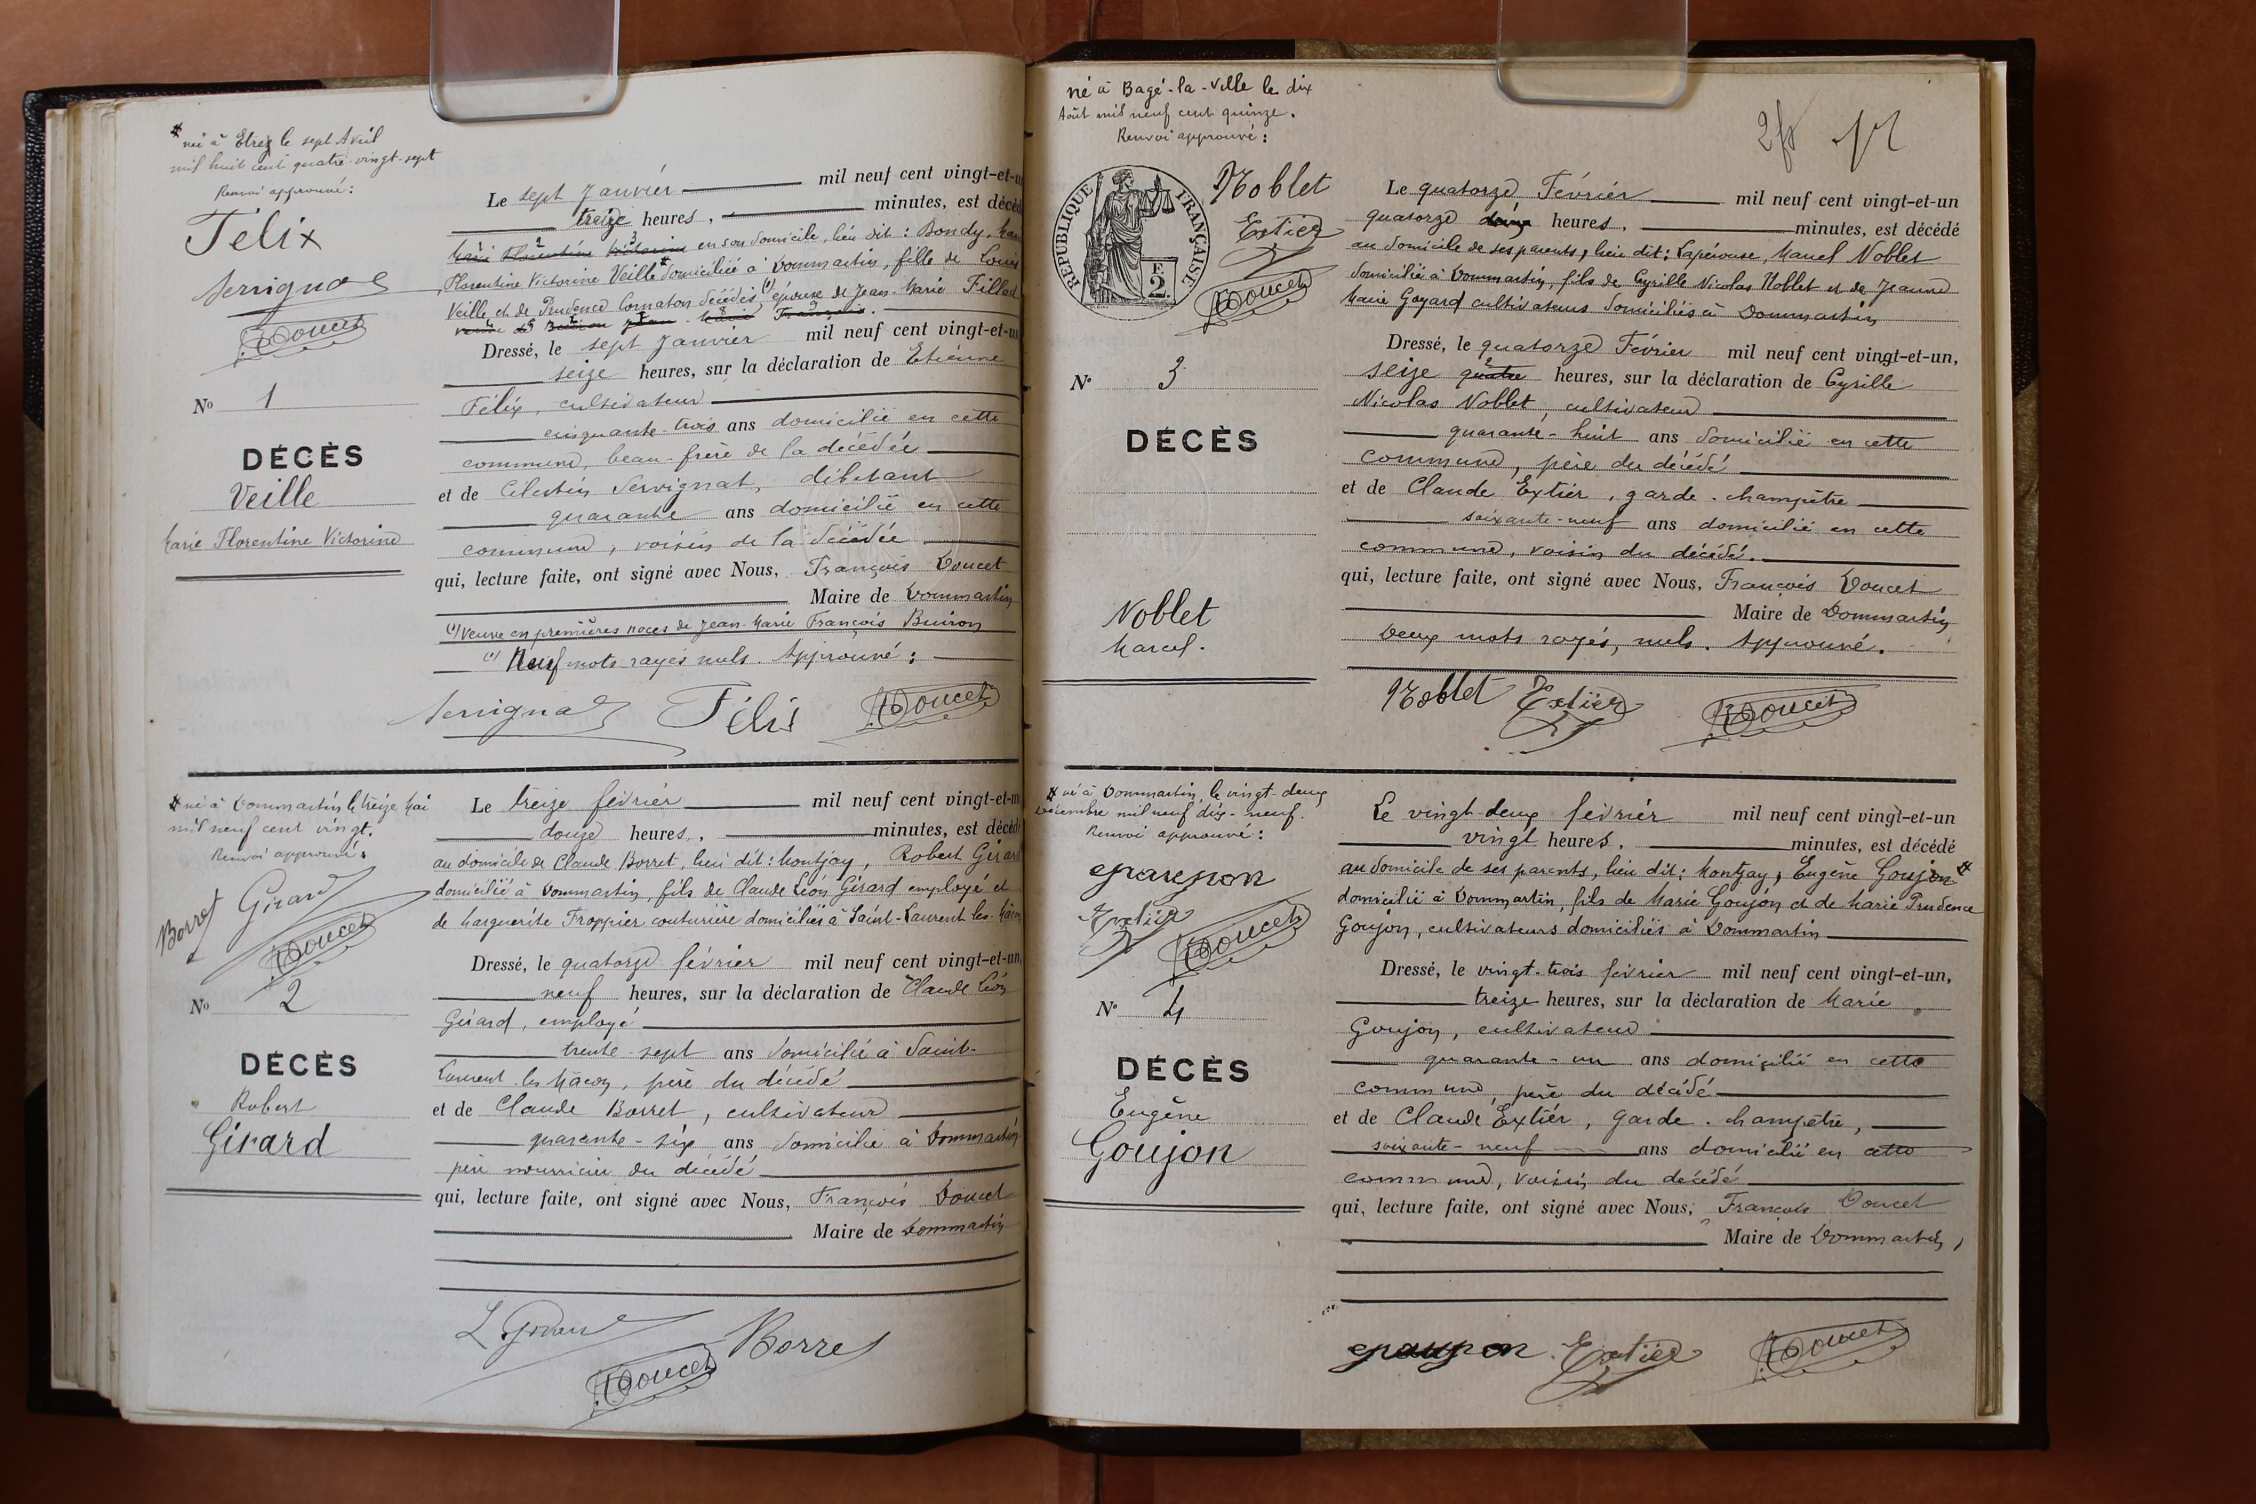 né à Etrez le sept Avril
mil huit cent quatre-vingt-sept
Renvoi approuvé :
Félix
Servignat
Doucet
No 1
DÉCÈS
Veille
Marie Florentine Victorine
Le sept Janvier mil neuf cent vingt-et-un
treize heures, minutes, est décédé
Marie Florentine Victorine en son domicile, lieu dit : Bondy, Marie
Florentine Victorine Veille domiciliée à Dommartin, fille de Louis
Veille et de Prudence Cornaton décédés, (1) épouse de Jean-Marie Fillod
veuve de Buiron Jean-Marie François.
Dressé, le sept Janvier mil neuf cent vingt-et-un
seize heures, sur la déclaration de Etienne
Félix, cultivateur
cinquante-trois ans domicilié en cette
commune, beau-frère de la décédée
et de Célestin Servignat, débitant
quarante ans domicilié en cette
commune, voisin de la décédée
qui, lecture faite, ont signé avec Nous, François Doucet
Maire de Dommartin
(1) Veuve en premières noces de Jean-Marie François Buiron
(1) Neuf mots rayés nuls. Approuvé :
Servignat Félix Doucet
né à Dommartin le treize Mai
mil neuf cent vingt.
Renvoi approuvé :
Borret Girard
Doucet
No 2
DÉCÈS
Robert
Girard
Le treize février mil neuf cent vingt-et-un
douze heures, minutes, est décédé
au domicile de Claude Borret, lieu dit : Montjay, Robert Girard
domicilié à Dommartin, fils de Claude Léon Girard employé et
de Marguerite Froppier couturière domiciliés à Saint-Laurent-les-Mâcon
Dressé, le quatorze février mil neuf cent vingt-et-un,
neuf heures, sur la déclaration de Claude Léon
Girard, employé
trente-sept ans domicilié à Saint-
Laurent-les-Mâcon, père du décédé
et de Claude Borret, cultivateur
quarante-six ans domicilié à Dommartin
père nourricier du décédé
qui, lecture faite, ont signé avec Nous, François Doucet
Maire de Dommartin
L Girard Borret
Doucet
né à Bagé-la-Ville le dix
Août mil neuf cent quinze.
Renvoi approuvé :
RÉPUBLIQUE FRANÇAISE
F
2
Noblet
Extier
Doucet
No 3
DÉCÈS
Noblet
Marcel.
2f
Le quatorze Février mil neuf cent vingt-et-un
quatorze deux heures, minutes, est décédé
au domicile de ses parents, lieu dit : Lapérouse, Marcel Noblet
domicilié à Dommartin, fils de Cyrille Nicolas Noblet et de Jeanne
Marie Gayard cultivateurs domiciliés à Dommartin
Dressé, le quatorze Février mil neuf cent vingt-et-un,
seize quatre heures, sur la déclaration de Cyrille
Nicolas Noblet, cultivateur
quarante-huit ans domicilié en cette
commune, père du décédé
et de Claude Extier, garde-champêtre
soixante-neuf ans domicilié en cette
commune, voisin du décédé.
qui, lecture faite, ont signé avec Nous, François Doucet
Maire de Dommartin
Deux mots rayés, nuls. Approuvé.
Noblet Extier Doucet
né à Dommartin, le vingt-deux
Décembre mil neuf dix-neuf.
Renvoi approuvé :
goujon
Extier
Doucet
No 4
DÉCÈS
Eugène
Goujon
Le vingt-deux février mil neuf cent vingt-et-un
vingt heures, minutes, est décédé
au domicile de ses parents, lieu dit : Montjay, Eugène Goujon
domicilié à Dommartin, fils de Marie Goujon et de Marie Prudence
Goujon, cultivateurs domiciliés à Dommartin
Dressé, le vingt-trois février mil neuf cent vingt-et-un,
treize heures, sur la déclaration de Marie
Goujon, cultivateur
quarante-un ans domicilié en cette
commune, père du décédé
et de Claude Extier, garde-champêtre,
soixante-neuf ans domicilié en cette
commune, voisin du décédé
qui, lecture faite, ont signé avec Nous, François Doucet
Maire de Dommartin,
goujon Extier Doucet